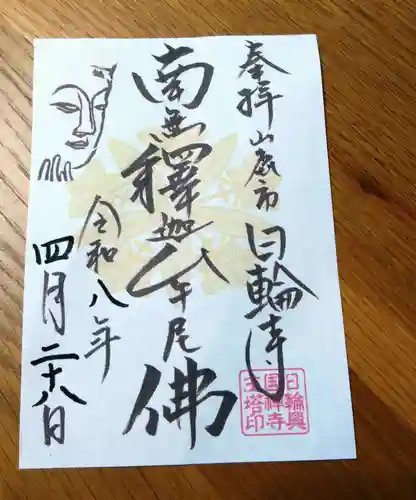 奉拝 山鹿市 日輪寺
南無釋迦牟尼佛
令和八年
四月二十八日
日輪興
国禅寺
宝塔印